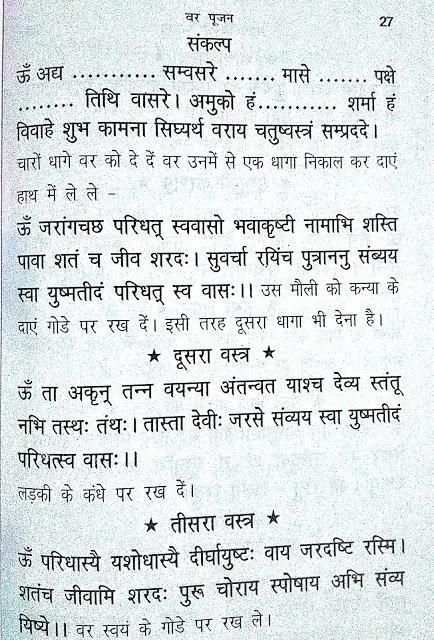 वर पूजन 27
संकल्प
ॐ अद्य ........... सम्वसरे ....... मासे ....... पक्षे
........ तिथि वासरे। अमुको हं........... शर्मा हं
विवाहे शुभ कामना सिघ्यर्थ वराय चतुष्वस्त्रं सम्प्रददे।
चारों धागे वर को दे दें वर उनमें से एक धागा निकाल कर दाएं
हाथ में ले ले –
ॐ जरांगचछ परिधतृ स्ववासो भवाकृष्टी नामाभि शस्ति
पावा शतं च जीव शरदः। सुवर्चा रयिंच पुत्राननु संब्यय
स्वा युष्मतीदं परिधतृ स्व वासः।। उस मौली को कन्या के
दाएं गोडे पर रख दें। इसी तरह दूसरा धागा भी देना है।
★ दूसरा वस्त्र ★
ॐ ता अकृन् तन्न वयन्या अंतन्वत याश्च देव्य स्तंतू
नभि तस्थः तंथः। तास्ता देवीः जरसे संव्यय स्वा युष्मतीदं
परिधत्स्व वासः।।
लड़की के कंधे पर रख दें।
★ तीसरा वस्त्र ★
ॐ परिधास्यै यशोधास्यै दीर्घायुष्टः वाय जरदष्टि रस्मि।
शतंच जीवामि शरदः पुरू चोराय स्पोषाय अभि संव्य
यिष्ये।। वर स्वयं के गोडे पर रख ले।